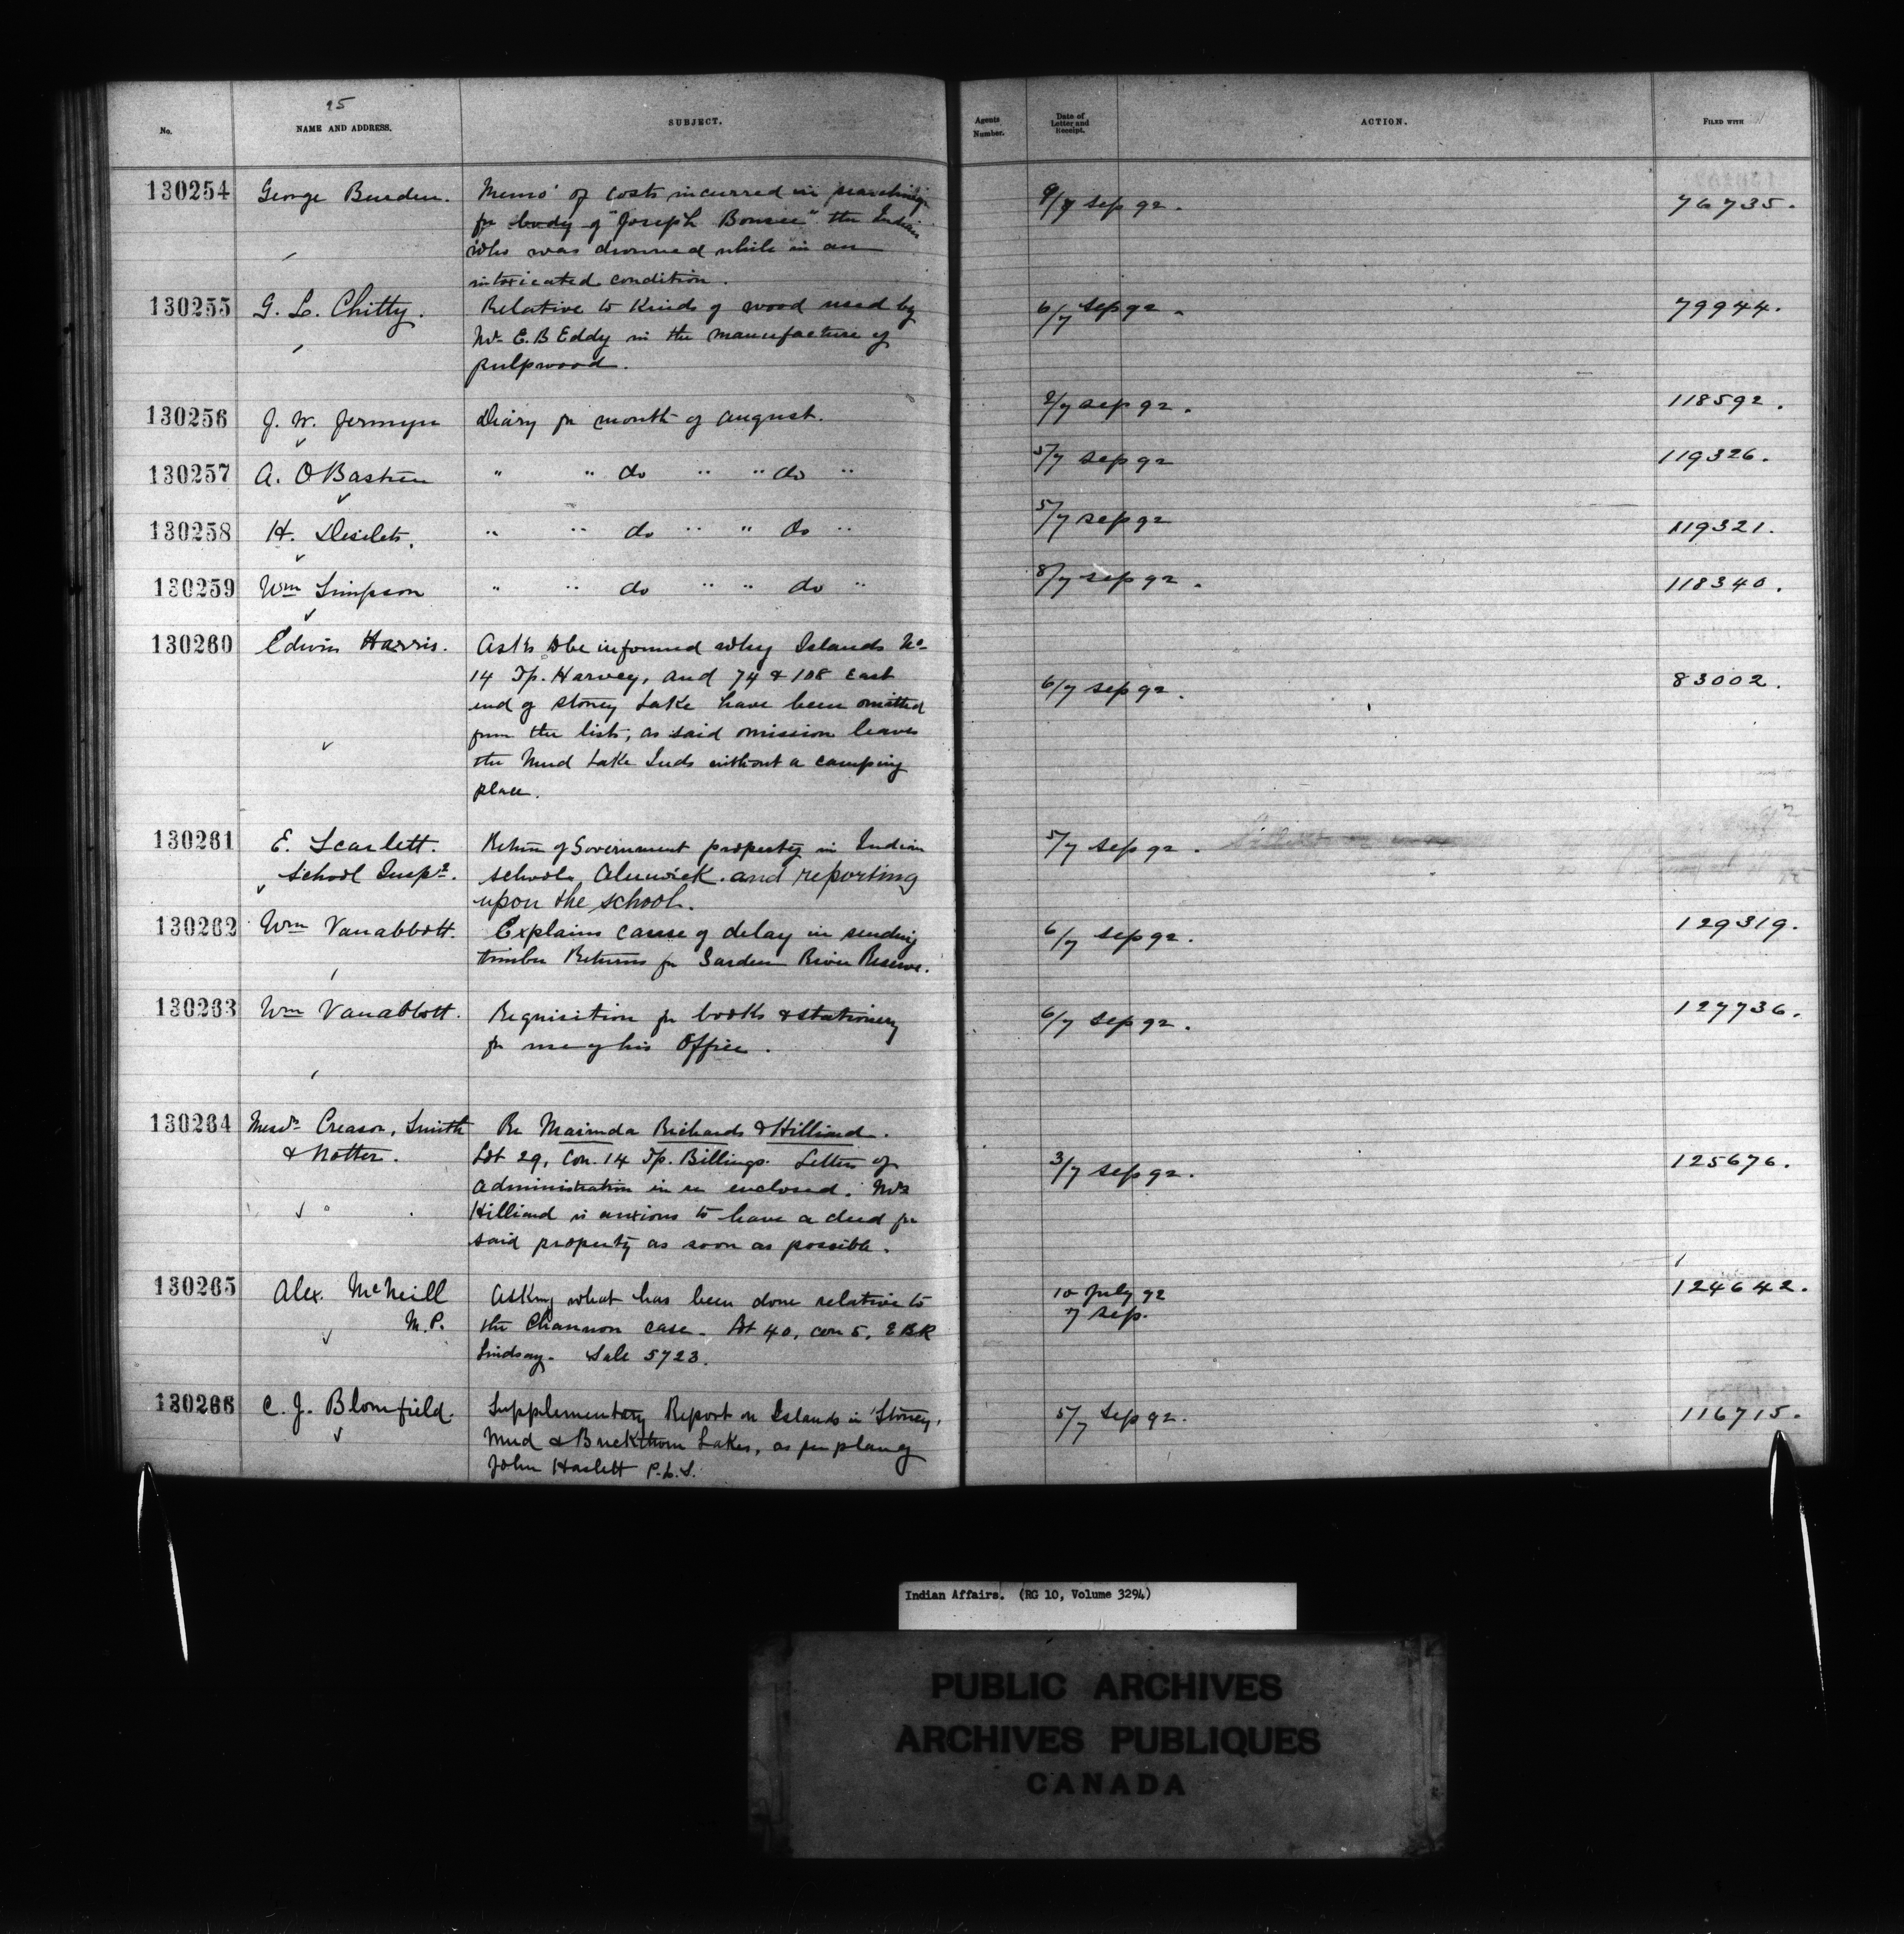 95
No. NAME AND ADDRESS. SUBJECT. Agents Number. Date of Letter and Receipt. ACTION. FILED WITH
130254 George Burden. Memo' of costs incurred in searching 9/7 Sep 92. 76735.
for body of "Joseph Bonsee" the Indian
who was drowned while in an
intoxicated condition.
130255 G. L. Chitty. Relative to Kinds of wood used by 6/7 Sep 92. 79944.
Mr E. B Eddy in the manufacture of
pulpwood.
130256 J. W. Jermyn Diary for month of august. 2/7 Sep 92. 118592.
130257 A. O Bastien " " do " " do " 5/7 Sep 92 119326.
130258 H. Desilets. " " do " " do " 5/7 Sep 92 119321.
130259 Wm Simpson " " do " " do " 8/7 Sep 92. 118340.
130260 Edwin Harris. Asks to be informed why Islands No
14 Tp. Harvey, and 74 & 108 East 6/7 Sep 92. 83002.
end of Stoney Lake have been omitted
from the list, as said omission leaves
the Mud Lake Inds without a camping
place.
130261 E. Scarlett. Return of Government property in Indian 5/7 Sep 92.
School Inspr. school Alnwick. and reporting
upon the school.
130262 Wm Vanabbott. Explains cause of delay in sending 6/7 Sep 92. 129319.
timber Returns for Garden River Reserve.
130263 Wm Vanabbott. Requisition for books & stationery 6/7 Sep 92. 127736.
for use of his Office.
130264 Messrs Creasor, Smith Re Marinda Richards & Hilliard.
& Notter. Lot 29, Con. 14 Tp. Billings. Letters of 3/7 Sep 92. 125676.
Administration in re enclosed. Mrs
Hilliard is anxious to have a deed for
said property as soon as possible.
130265 Alex. McNeill Asking what has been done relative to 10 July 92 124642.
M.P. the Channon case. Lot 40, con 5, E B R 7 Sep.
Lindsay. Sale 5723.
130266 C. J. Blomfield. Supplementary Report on Islands in Stoney, 5/7 Sep 92. 116715.
Mud & Buckthorn Lakes, as per plan of
John Haslett P.L.S.
Indian Affairs. (RG 10, Volume 3294)
PUBLIC ARCHIVES
ARCHIVES PUBLIQUES
CANADA